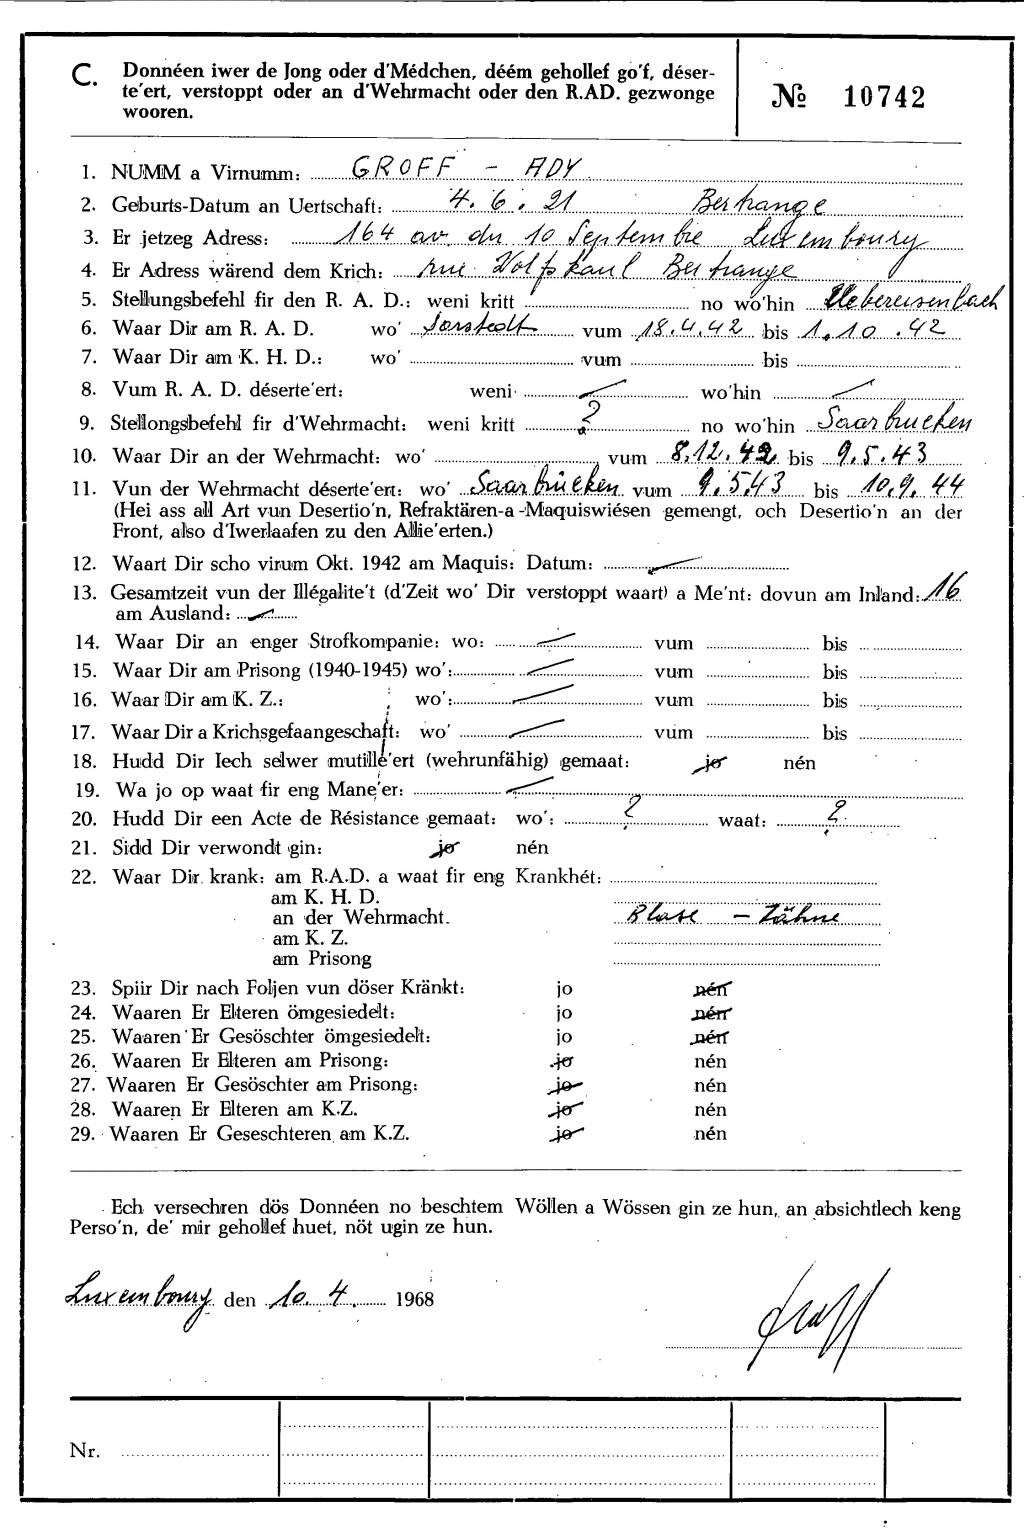 C. Donnéen iwer de Jong oder d'Médchen, déém gehollef go'f, déser-
te'ert, verstoppt oder an d'Wehrmacht oder den R.AD. gezwonge
wooren.
№ 10742
1. NUMM a Virnumm: GROFF - ADY
2. Geburts-Datum an Uertschaft: 4.6.21 Bertrange
3. Er jetzeg Adress: 164 av. du 10 Septembre Luxembourg
4. Er Adress wärend dem Krich: rue Wolfskaul Bertrange
5. Stellungsbefehl fir den R. A. D.: weni kritt no wo'hin Uebereisenbach
6. Waar Dir am R. A. D. wo' Sarstedt vum 18.4.42 bis 1.10.42
7. Waar Dir am K. H. D.: wo' vum bis
8. Vum R. A. D. déserte'ert: weni / wo'hin /
9. Stellongsbefehl fir d'Wehrmacht: weni kritt ? no wo'hin Saarbrucken
10. Waar Dir an der Wehrmacht: wo' vum 8.12.42 bis 9.5.43
11. Vun der Wehrmacht déserte'ert: wo' Saarbrücken vum 9.5.43 bis 10.9.44
(Hei ass all Art vun Desertio'n, Refraktären-a-Maquiswiésen gemengt, och Desertio'n an der
Front, also d'Iwerlaafen zu den Allie'erten.)
12. Waart Dir scho virum Okt. 1942 am Maquis: Datum: /
13. Gesamtzeit vun der Illégalite't (d'Zeit wo' Dir verstoppt waart) a Me'nt: dovun am Inland: 16
am Ausland: /
14. Waar Dir an enger Strofkompanie: wo: / vum bis
15. Waar Dir am Prisong (1940-1945) wo': / vum bis
16. Waar Dir am K. Z.: wo': / vum bis
17. Waar Dir a Krichsgefaangeschaft: wo' / vum bis
18. Hudd Dir Iech selwer mutille'ert (wehrunfähig) gemaat: jo nén
19. Wa jo op waat fir eng Mane'er: /
20. Hudd Dir een Acte de Résistance gemaat: wo': ? waat: ?
21. Sidd Dir verwondt gin: jo nén
22. Waar Dir krank: am R.A.D. a waat fir eng Krankhét:
am K. H. D.
an der Wehrmacht Blase - Zähne
am K. Z.
am Prisong
23. Spiir Dir nach Foljen vun döser Kränkt: jo nén
24. Waaren Er Elteren ömgesiedelt: jo nén
25. Waaren Er Gesöschter ömgesiedelt: jo nén
26. Waaren Er Elteren am Prisong: jo nén
27. Waaren Er Gesöschter am Prisong: jo nén
28. Waaren Er Elteren am K.Z. jo nén
29. Waaren Er Geseschteren am K.Z. jo nén
Ech versechren dös Donnéen no beschtem Wöllen a Wössen gin ze hun, an absichtlech keng
Perso'n, de' mir gehollef huet, nöt ugin ze hun.
Luxembourg den 10. 4. 1968
Groff
Nr.